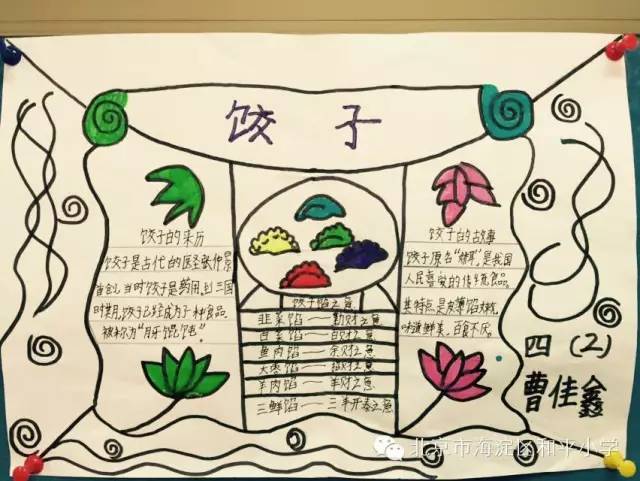 饺子
饺子的来历
饺子是古代的医圣张仲景
首创，当时饺子是药用，到三国
时期，饺子已经成为了一种食品。
被称为“月牙馄饨”。
饺子馅之意
韭菜馅——勤财之意
白菜馅——百财之意
鱼肉馅——余财之意
大枣馅——招财之意
羊肉馅——羊财之意
三鲜馅——三羊开泰之意
饺子的故事
饺子原名“娇耳”，是我国
人民喜爱的传统食品。
其特点是皮薄馅大，
味道鲜美，百食不厌。
四（2）
曹佳鑫
北京市海淀区和平小学